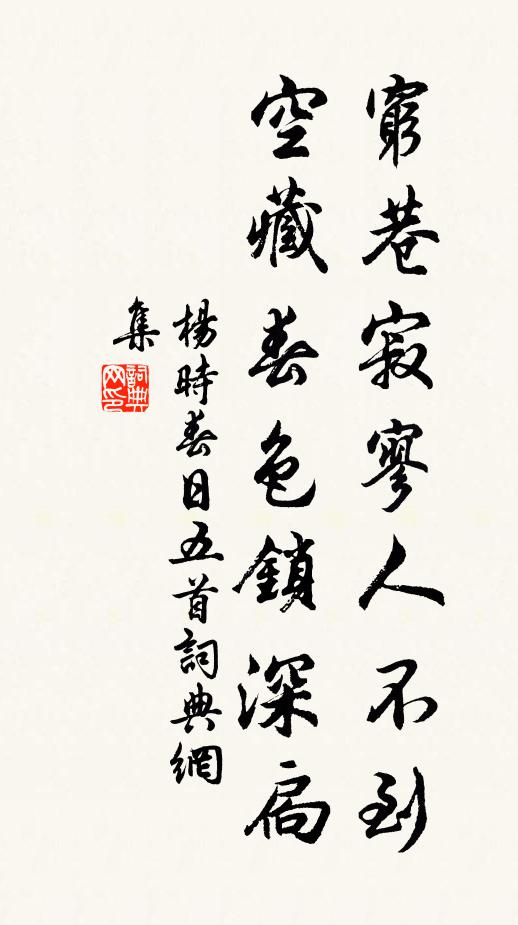 窮巷寂寥人不到
空藏春色鎖深扃
楊時春日五首詞典網
集
詞典
网印